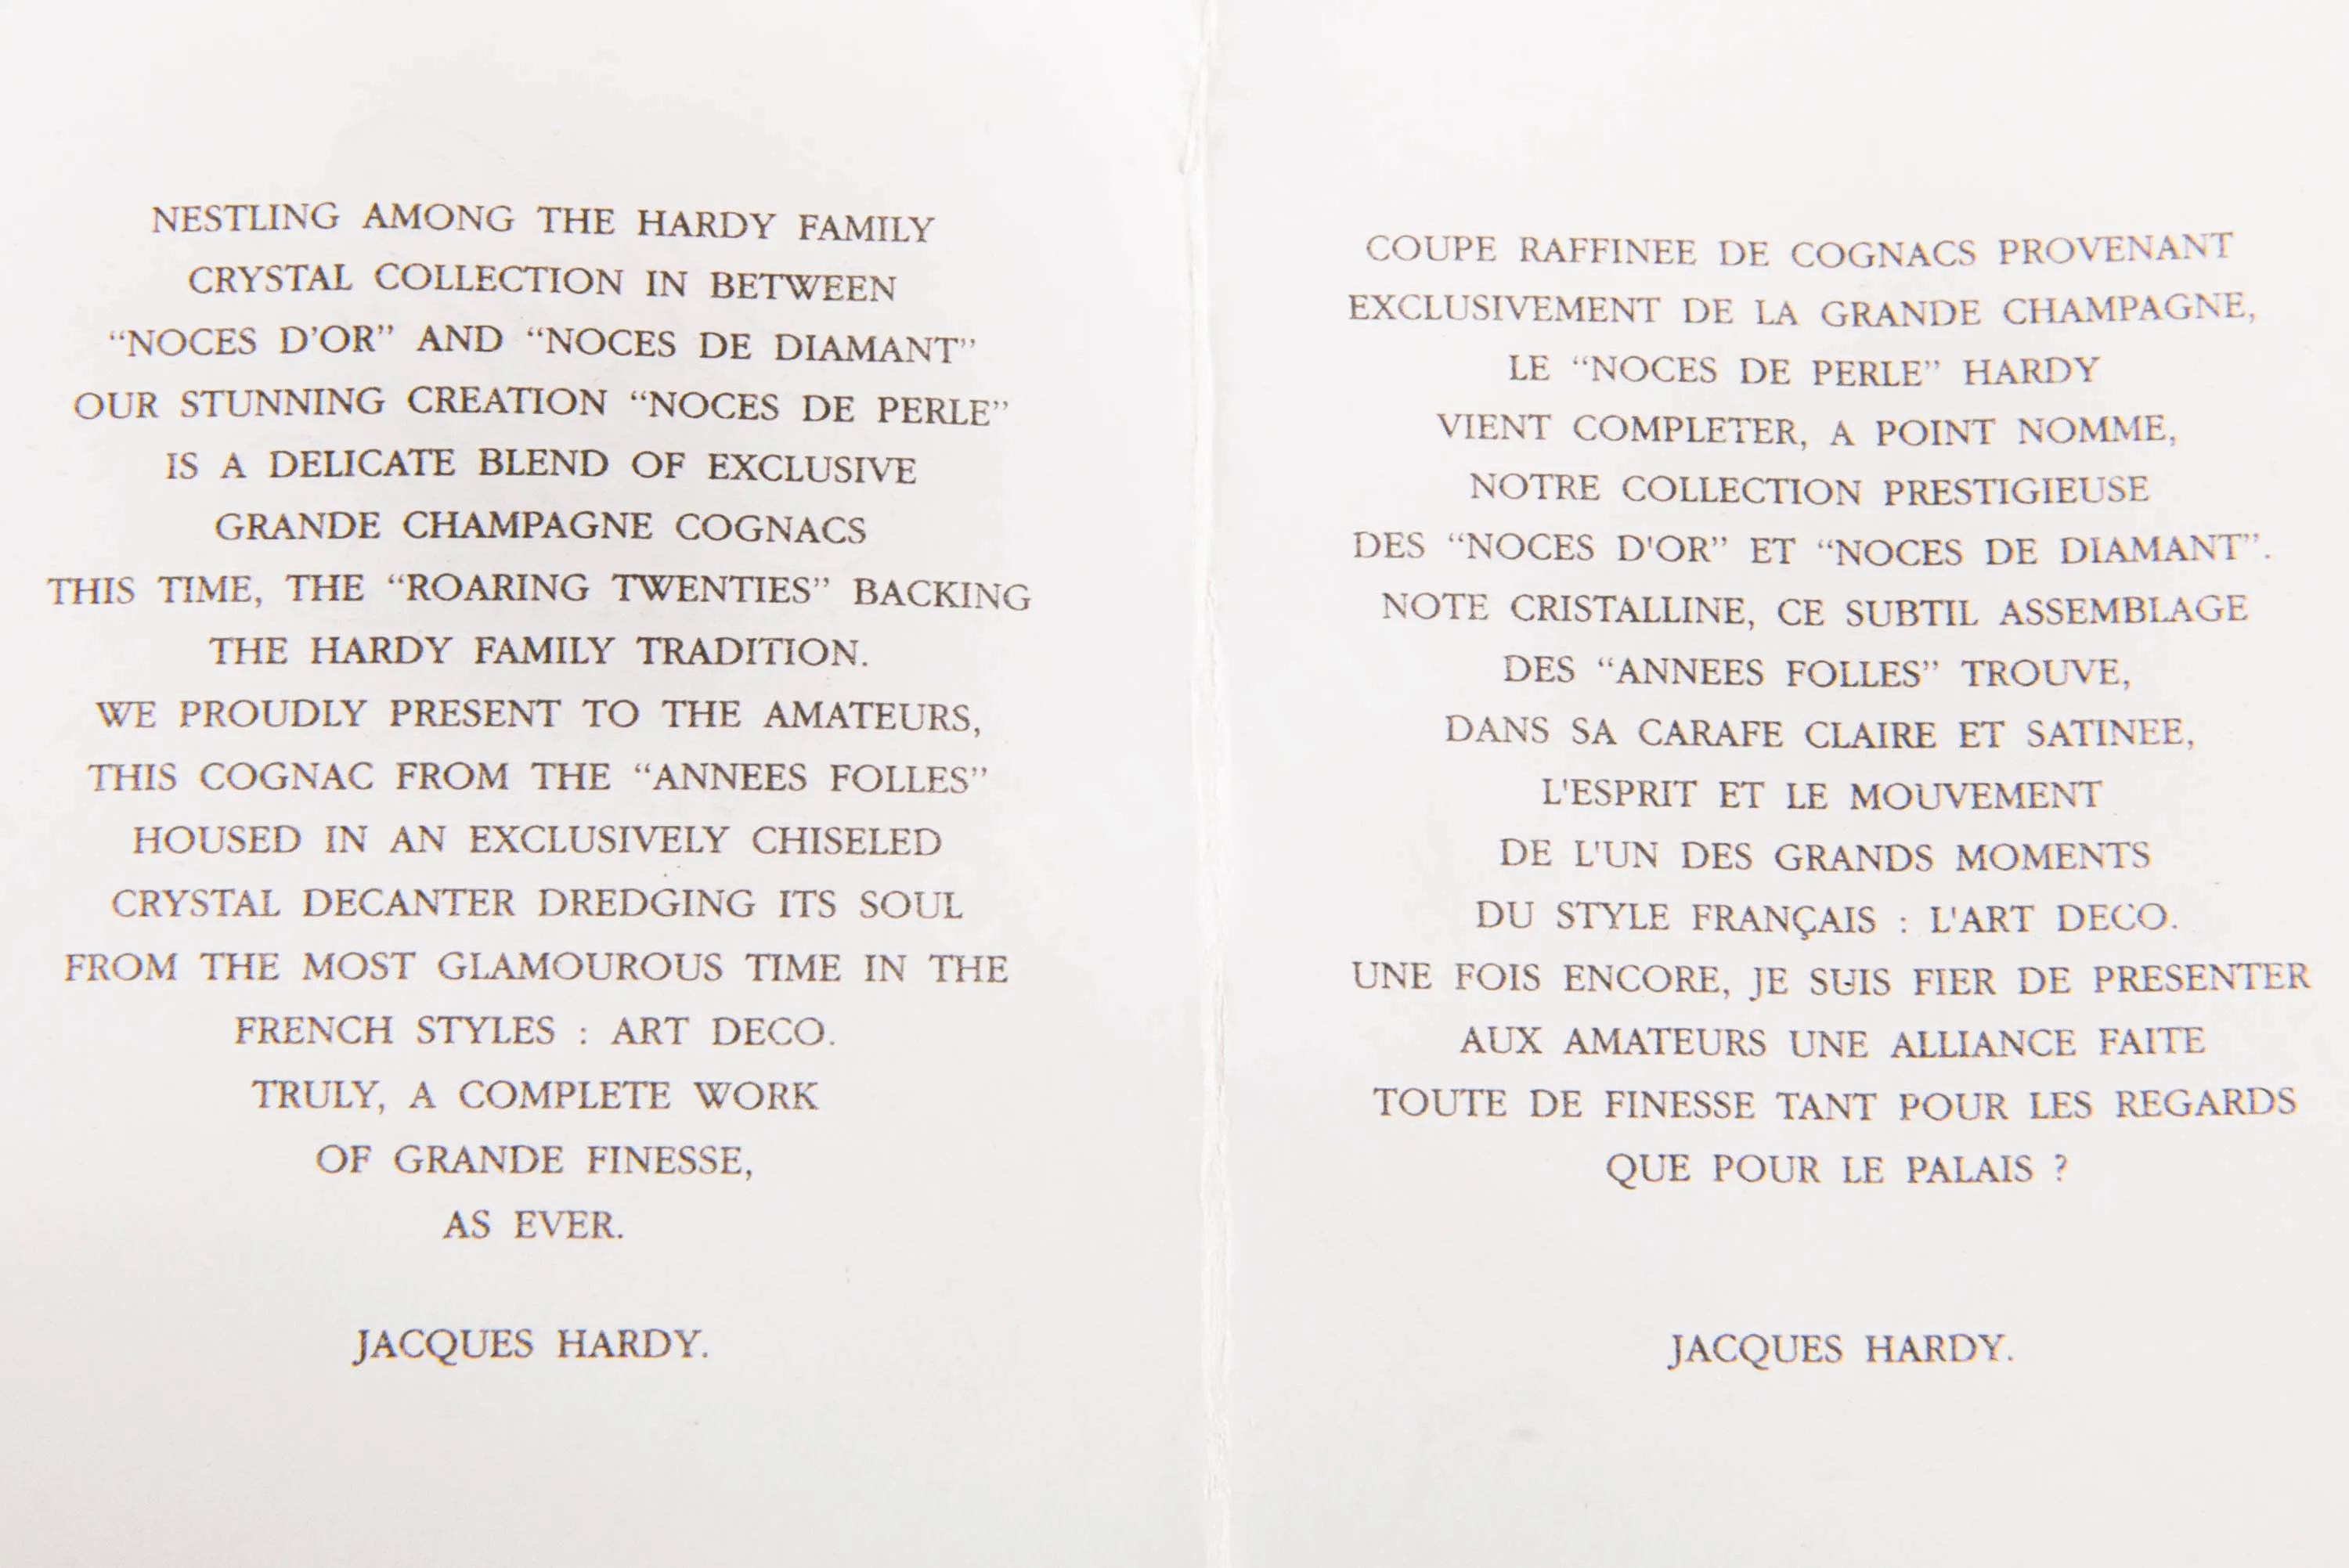 NESTLING AMONG THE HARDY FAMILY
CRYSTAL COLLECTION IN BETWEEN
“NOCES D’OR” AND “NOCES DE DIAMANT”
OUR STUNNING CREATION “NOCES DE PERLE”
IS A DELICATE BLEND OF EXCLUSIVE
GRANDE CHAMPAGNE COGNACS
THIS TIME, THE “ROARING TWENTIES” BACKING
THE HARDY FAMILY TRADITION.
WE PROUDLY PRESENT TO THE AMATEURS,
THIS COGNAC FROM THE “ANNEES FOLLES”
HOUSED IN AN EXCLUSIVELY CHISELED
CRYSTAL DECANTER DREDGING ITS SOUL
FROM THE MOST GLAMOUROUS TIME IN THE
FRENCH STYLES : ART DECO.
TRULY, A COMPLETE WORK
OF GRANDE FINESSE,
AS EVER.
JACQUES HARDY.
COUPE RAFFINEE DE COGNACS PROVENANT
EXCLUSIVEMENT DE LA GRANDE CHAMPAGNE,
LE “NOCES DE PERLE” HARDY
VIENT COMPLETER, A POINT NOMME,
NOTRE COLLECTION PRESTIGIEUSE
DES “NOCES D'OR” ET “NOCES DE DIAMANT”.
NOTE CRISTALLINE, CE SUBTIL ASSEMBLAGE
DES “ANNEES FOLLES” TROUVE,
DANS SA CARAFE CLAIRE ET SATINEE,
L'ESPRIT ET LE MOUVEMENT
DE L'UN DES GRANDS MOMENTS
DU STYLE FRANÇAIS : L'ART DECO.
UNE FOIS ENCORE, JE SUIS FIER DE PRESENTER
AUX AMATEURS UNE ALLIANCE FAITE
TOUTE DE FINESSE TANT POUR LES REGARDS
QUE POUR LE PALAIS ?
JACQUES HARDY.